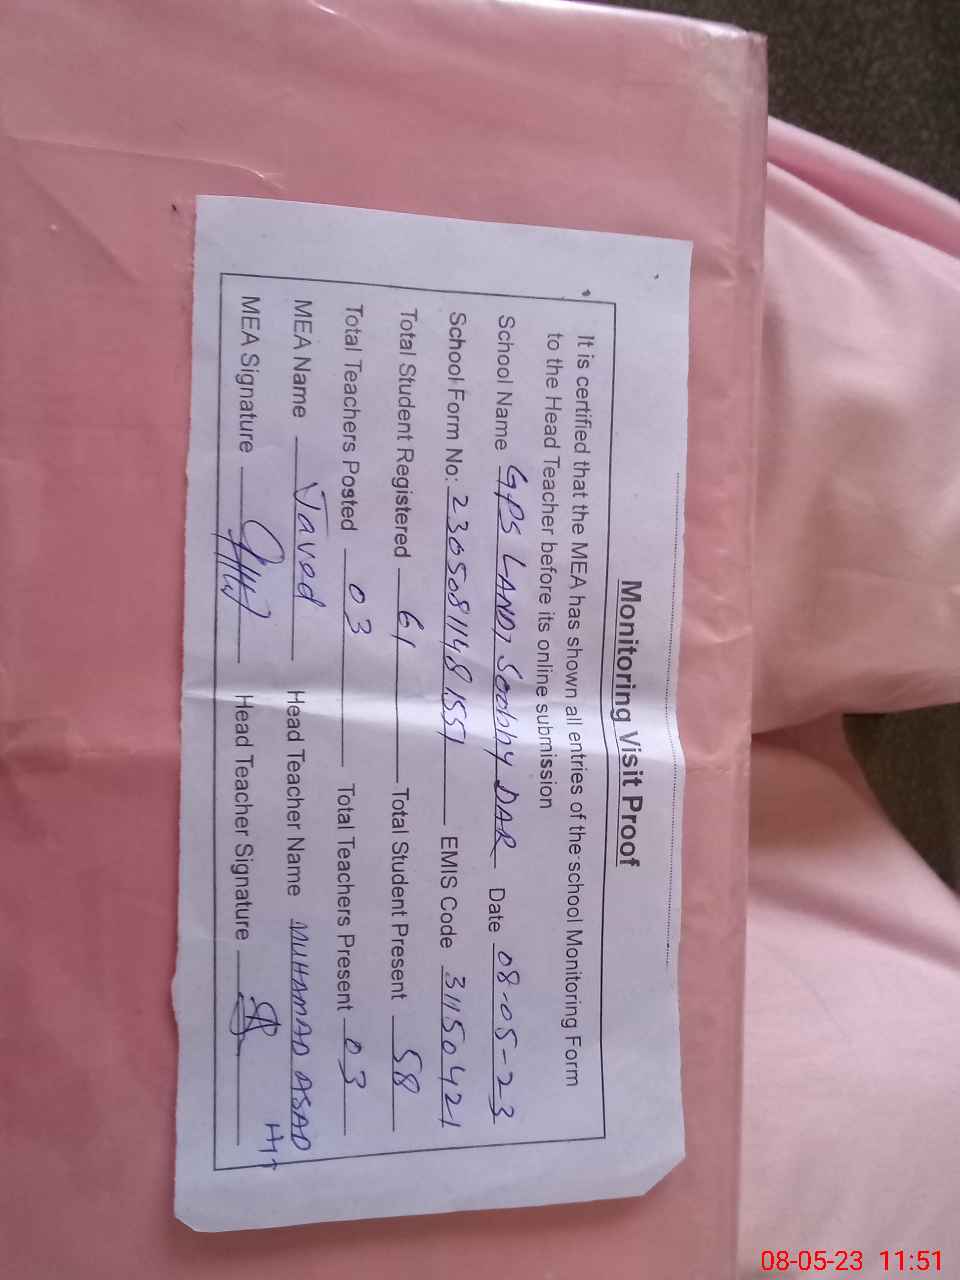 Monitoring Visit Proof
It is certified that the MEA has shown all entries of the school Monitoring Form
to the Head Teacher before its online submission
School Name GPS LANDI Soobhy DAR Date 08-05-23
School Form No: 23050811481551 EMIS Code 31150421
Total Student Registered 61 Total Student Present 58
Total Teachers Posted 03 Total Teachers Present 03
MEA Name Javed Head Teacher Name MUHAMAD ASAD
MEA Signature Head Teacher Signature
08-05-23 11:51